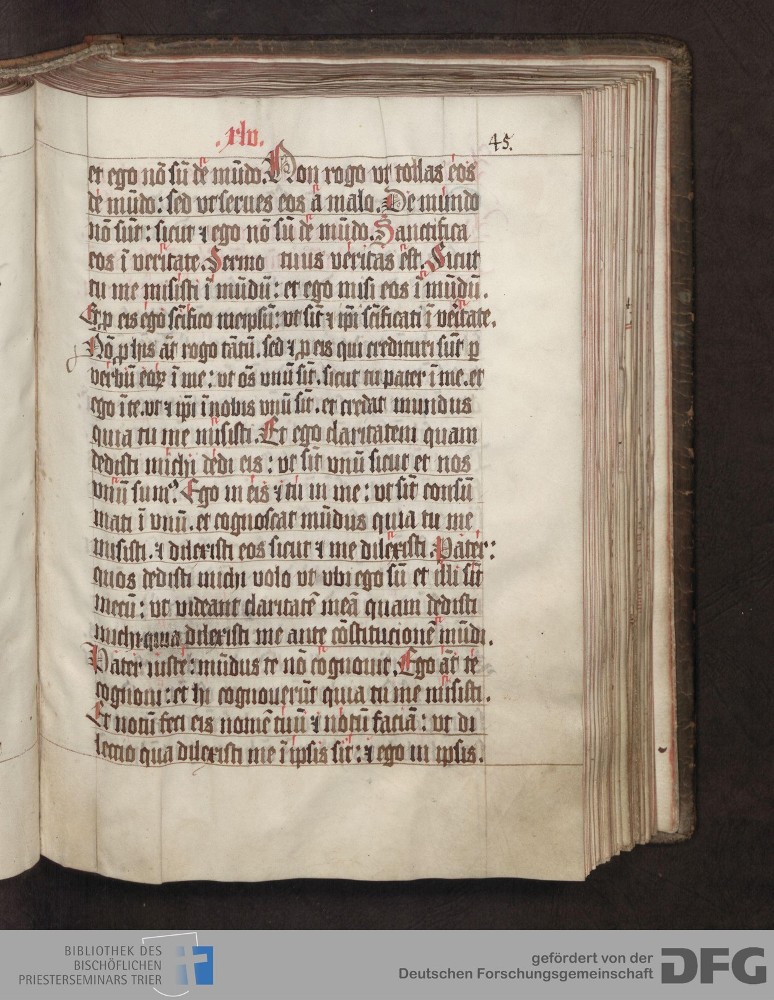 .xlv.
45.
et ego nō sū de mūdo. Non rogo vt tollas eos
de mūdo: sed vt serues eos a malo. De mundo
nō sūt: sicut ⁊ ego nō sū de mūdo. Sanctifica
eos ī veritate. Sermo tuus veritas est. Sicut
tu me misisti ī mūdū: et ego misi eos ī mūdū.
Et ꝓ eis ego scīfico meipsū: vt sīt ⁊ ip̄i scīficati ī veritate.
Nō ꝓ his aūt rogo tātū. sed ⁊ ꝓ eis qui credituri sūt ꝑ
verbū eoꝝ ī me: vt oēs vnū sīt. sicut tu pater ī me. et
ego ī te. vt ⁊ ip̄i ī nobis vnū sīt. et credat mundus
quia tu me misisti. Et ego claritatem quam
dedisti michi dedi eis: vt sīt vnū sicut et nos
vnū sumꝰ. Ego in eis ⁊ tu in me: vt sīt consū
mati ī vnū. et cognoscat mūdus quia tu me
misisti. ⁊ dilexisti eos sicut ⁊ me dilexisti. Pater:
quos dedisti michi volo vt vbi ego sū et illi sīt
mecū: vt videant claritatē meā quam dedisti
michi quia dilexisti me ante cōstitucionē mūdi.
Pater iuste: mūdus te nō cognouit. Ego aūt te
cognoui: et hi cognouerūt quia tu me misisti.
Et notū feci eis nomē tuū ⁊ notū faciā: vt di
lectio qua dilexisti me ī ipsis sit: ⁊ ego in ipsis.
BIBLIOTHEK DES
BISCHÖFLICHEN
PRIESTERSEMINARS TRIER
gefördert von der
Deutschen Forschungsgemeinschaft DFG